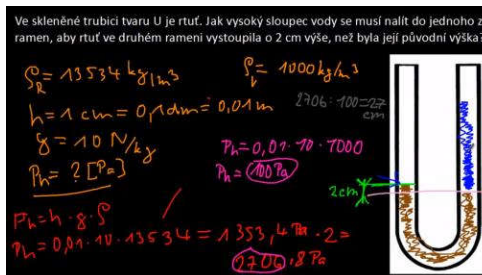 Ve skleněné trubici tvaru U je rtuť. Jak vysoký sloupec vody se musí nalít do jednoho z
ramen, aby rtuť ve druhém rameni vystoupila o 2 cm výše, než byla její původní výška?
ρR = 13534 kg/m³
ρv = 1000 kg/m³
h = 1 cm = 0,1dm = 0,01m
2706 : 100 = 27
cm
g = 10 N/kg
Ph = ? [Pa]
Ph = 0,01 · 10 · 1000
Ph = 100 Pa
2cm
Ph = h · g · ρ
Ph = 0,01 · 10 · 13534 = 1353,4 Pa · 2 =
2706,8 Pa